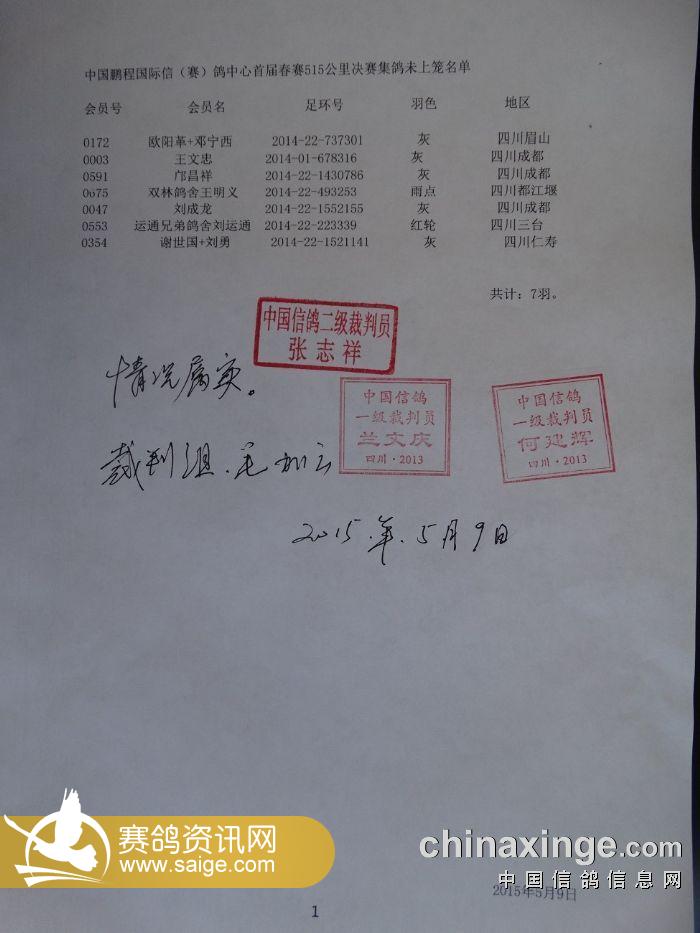 中国鹏程国际信（赛）鸽中心首届春赛515公里决赛集鸽未上笼名单
会员号 会员名 足环号 羽色 地区
0172 欧阳革+邓宁西 2014-22-737301 灰 四川眉山
0003 王文忠 2014-01-678316 灰 四川成都
0591 邝昌祥 2014-22-1430786 灰 四川成都
0675 双林鸽舍王明义 2014-22-493253 雨点 四川都江堰
0047 刘成龙 2014-22-1552155 灰 四川成都
0553 运通兄弟鸽舍刘运通 2014-22-223339 红轮 四川三台
0354 谢世国+刘勇 2014-22-1521141 灰 四川仁寿
共计：7羽。
中国信鸽二级裁判员
张志祥
情况属实。
中国信鸽
一级裁判员
兰文庆
四川·2013
中国信鸽
一级裁判员
何建辉
四川·2013
裁判组
2015.年.5月9日
赛鸽资讯网
www.saige.com
chinaxinge.com
中国信鸽信息网
2015年5月9日
1